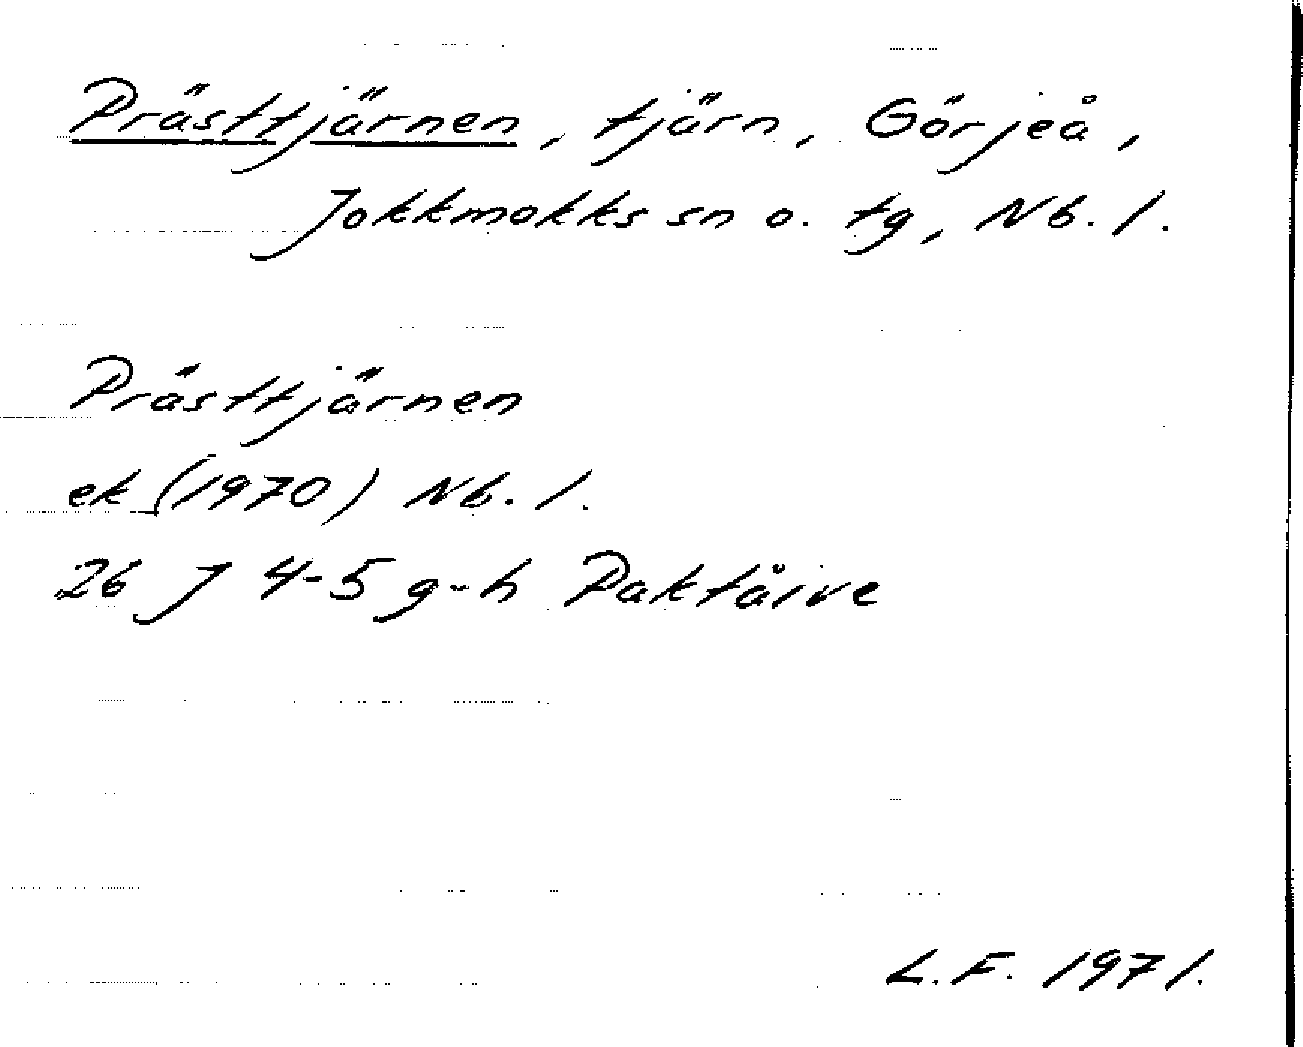 Prästtjärnen, tjärn, Görjeå,
Jokkmokks sn o. tg, Nb. l.
Prästtjärnen
ek (1970) Nb. l.
26 J 4-5 g-h Paktåive
L.F. 1971.